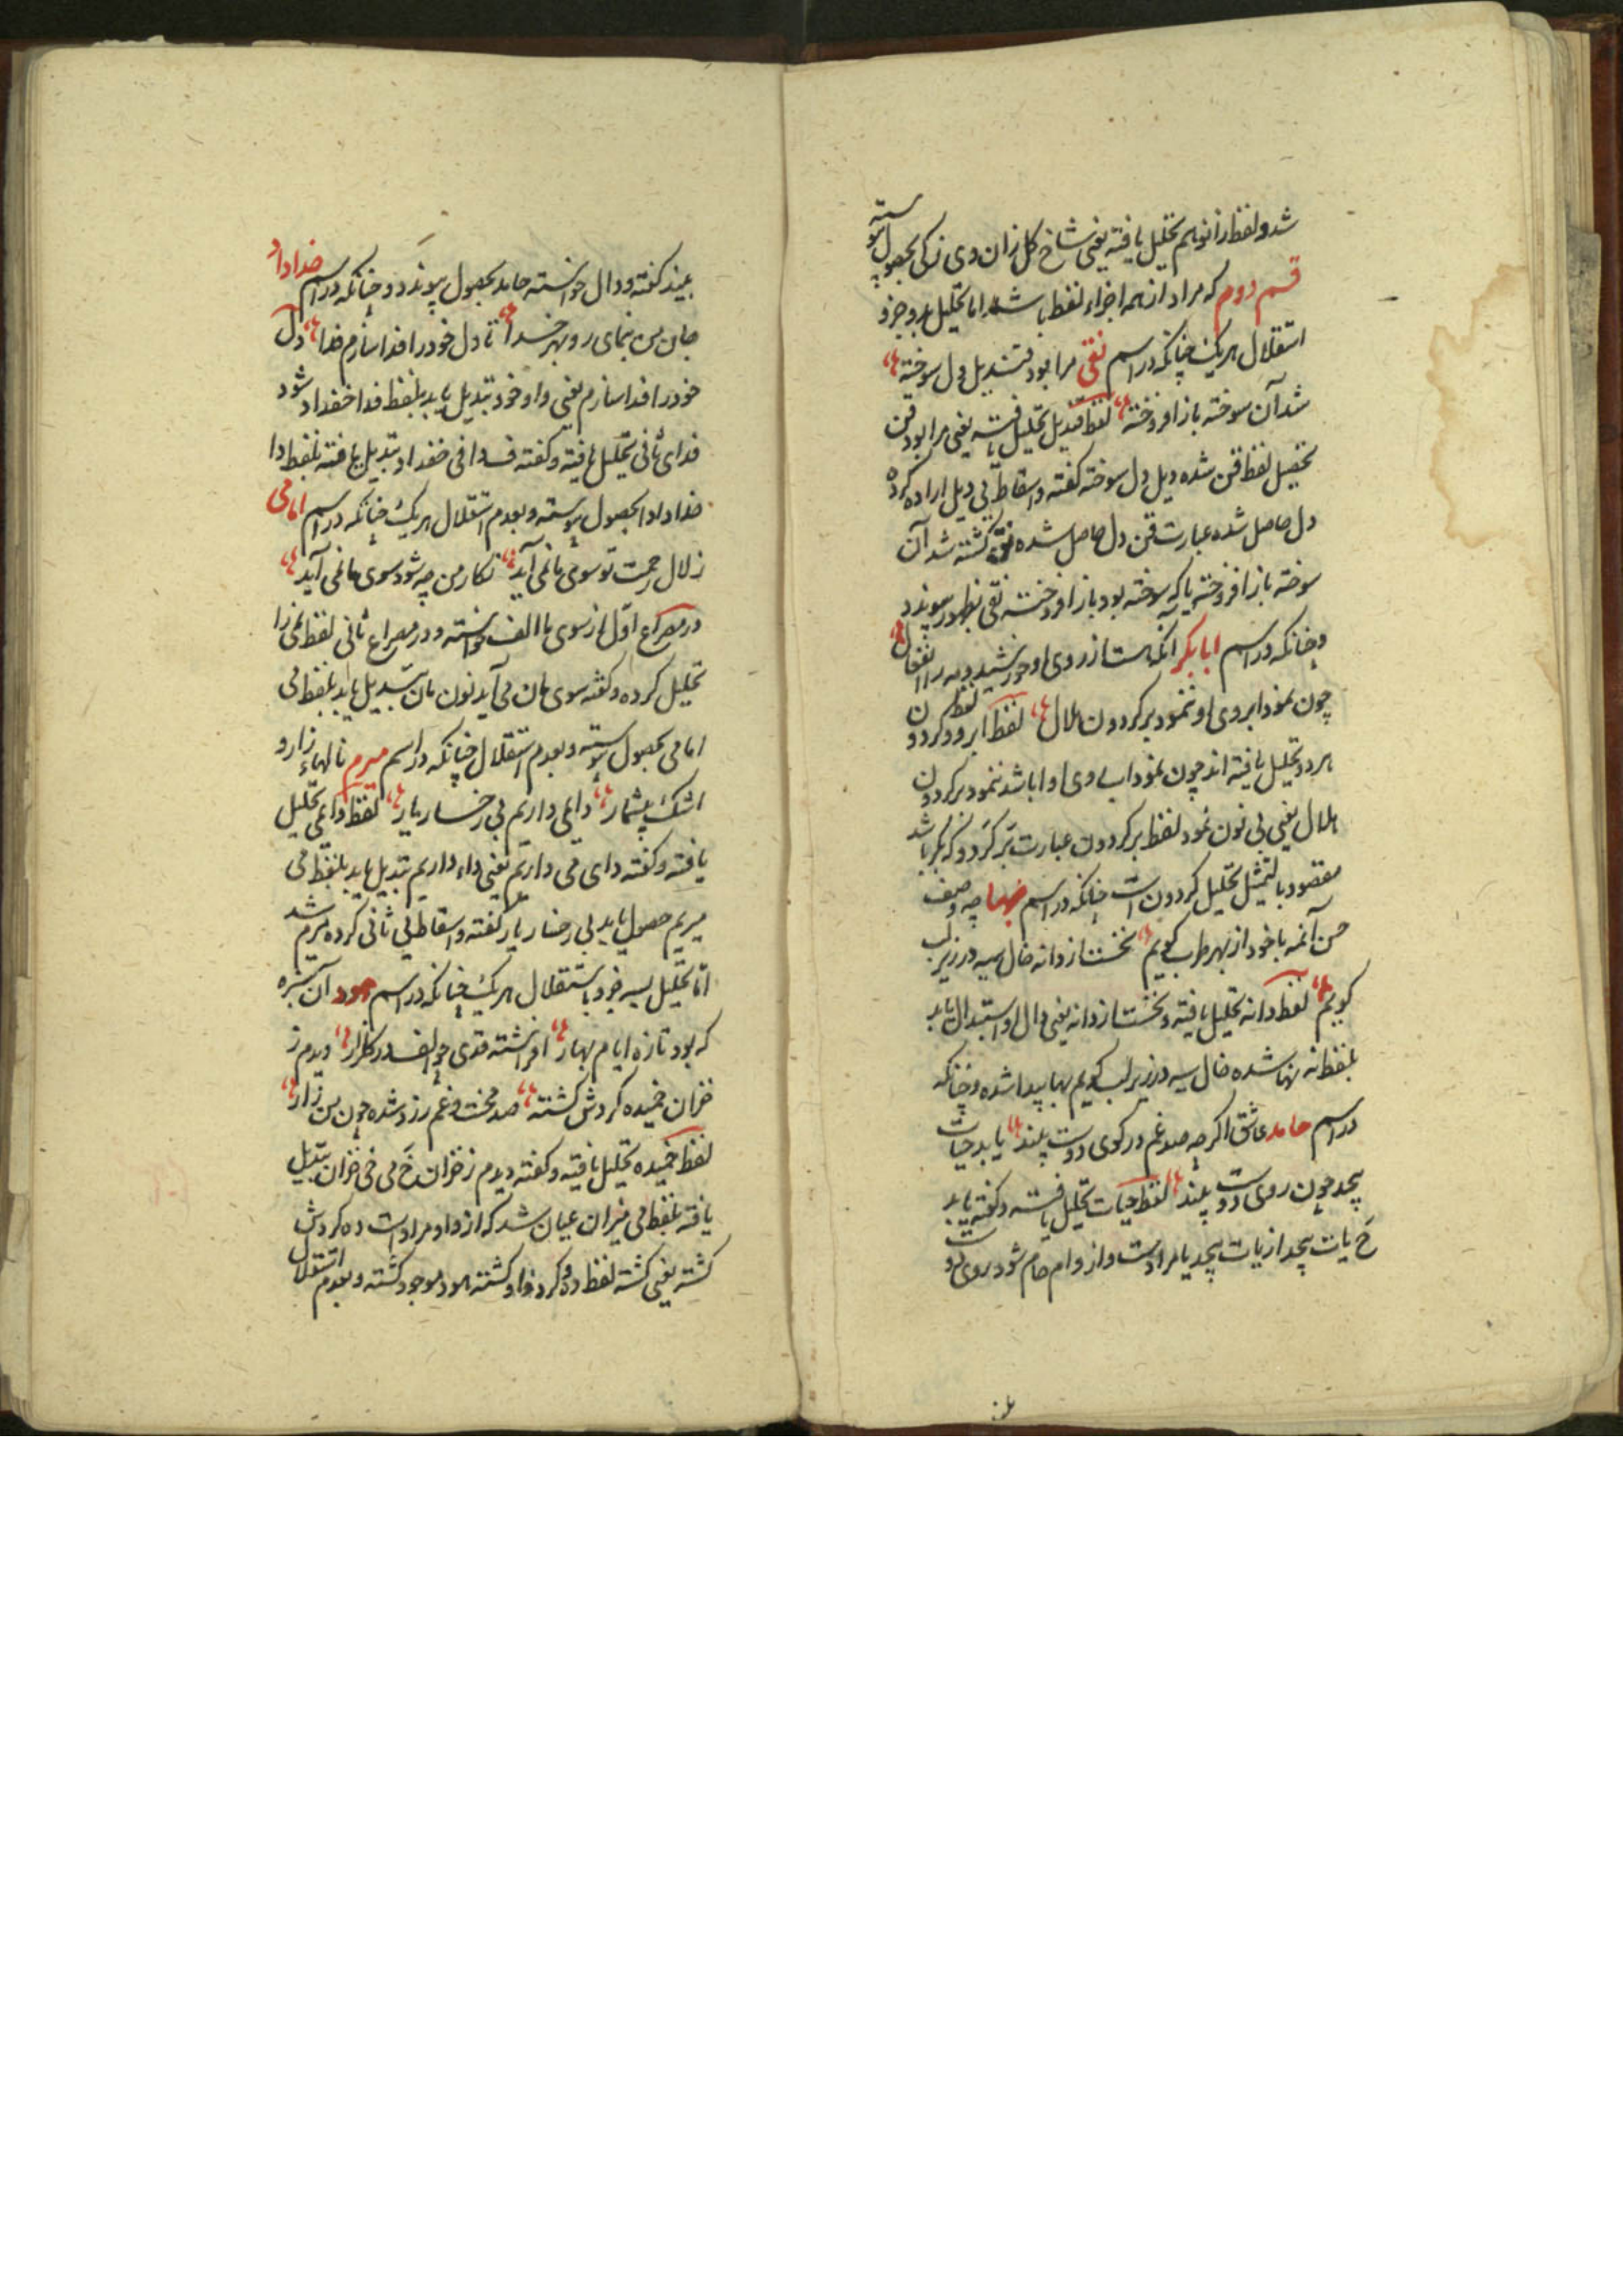 شد و لفظ زانو هم تحلیل یافته یعنی شاخ کل زان وی نزکی بحصول پیوسته
قسم دوم که مراد از همه اجزاء لفظ باشد اما تحلیل بدو جزو
استقلال هر یک چنانکه در اسم نقی مرا بود قندیل دل سوخته
شد آن سوخته باز افروخته لفظ قندیل تحلیل یافته یعنی مرا بود قن
تحصیل لفظ قن شده دیل دل سوخته کفته و اسقاط لی دیل اراده کرده
دل حاصل شده عبارت قن دل حاصل شده کشته شد آن
سوخته باز افروخته یا که سوخته بود باز افروخته نقی بظهور پیوندد
و چنانکه در اسم ابابکر آنکه هست از روی او خورشید و مه را انفعال
چون نمود ابروی او ننمود بر کردون هلال لفظ ابرو و لفظ کردون
هر دو تحلیل یافته اند چون نمود اب روی او ابا شد ننمود بر کردون
هلال یعنی بی نون نمود لفظ بر کردون عبارت بر کردو که بکر باشد
مقصود بالتمثیل تحلیل کردون است چنانکه در اسم بها چه وصف
حسن آن مه با خود از بهر طرب کویم نخست از دانه خال سیه در زیر لب
کویم لفظ دانه تحلیل یافته و نخست از دانه یعنی دال او استبدال یابد
بلفظ نه نها شده خال سیه در زیر لب کویم بها پیدا شده و چنانکه
در اسم حامد عاشق اکرچه صد غم در کوی دوست بیند یابد حیات
بیحد چون روی دوست بیند لفظ حیات تحلیل یافته و کفته یابد
ح یات بیحد از یات بیحد یا مرادست و از وام حام شود روی دوست
بیند کفته و دال خواسته حامد بحصول پیوندد و چنانکه در اسم خداداد
جان من بنمای رو بهر خدا تا دل خود را فدا سازم فدا دل
خود را فدا سازم یعنی واو خود تبدیل یابد بلفظ فدا خفداد شود
فدای ثانی تحلیل یافته و کفته ف دا فی خفداد تبدیل یافته بلفظ دا
خداداد بحصول پیوسته و بعدم استقلال هر یک چنانکه در اسم امامی
زلال رحمت تو سوی ما نمی آید نکار من چه شود سوی ما نمی آید
در مصراع اول از سوی ما الف خواسته و در مصراع ثانی لفظ نمی را
تحلیل کرده و کفته سوی مان می آید نون مان تبدیل یابد بلفظ می
امامی بحصول پیوسته و بعدم استقلال چنانکه در اسم میرم نالهاء زار و
اشک بیشمار داغی داریم بی رخسار یار لفظ داغی تحلیل
یافته و کفته دای می داریم یعنی داء داریم تبدیل یابد بلفظ می
میریم حصول یابد بی رخسار یار کفته و اسقاط یی ثانی کرده میرم شد
اما تحلیل بسه جزو باستقلال هر یک چنانکه در اسم هود آن سبزه
که بود تازه ایام بهار افراشته قدی چو الف در کلزار دیدم ز
خزان خمیده کردش کشته صد محنت و غم رزد شده چون من زار
لفظ خمیده تحلیل یافته و کفته دیدم ز خزان خ می خی خزان تبدیل
یافته بلفظ می میزان عیان شد که از و او مرادست ده کردش
کشته یعنی کشته لفظ ده کرد واو کشته هود موجود کشته و بعدم استقلال